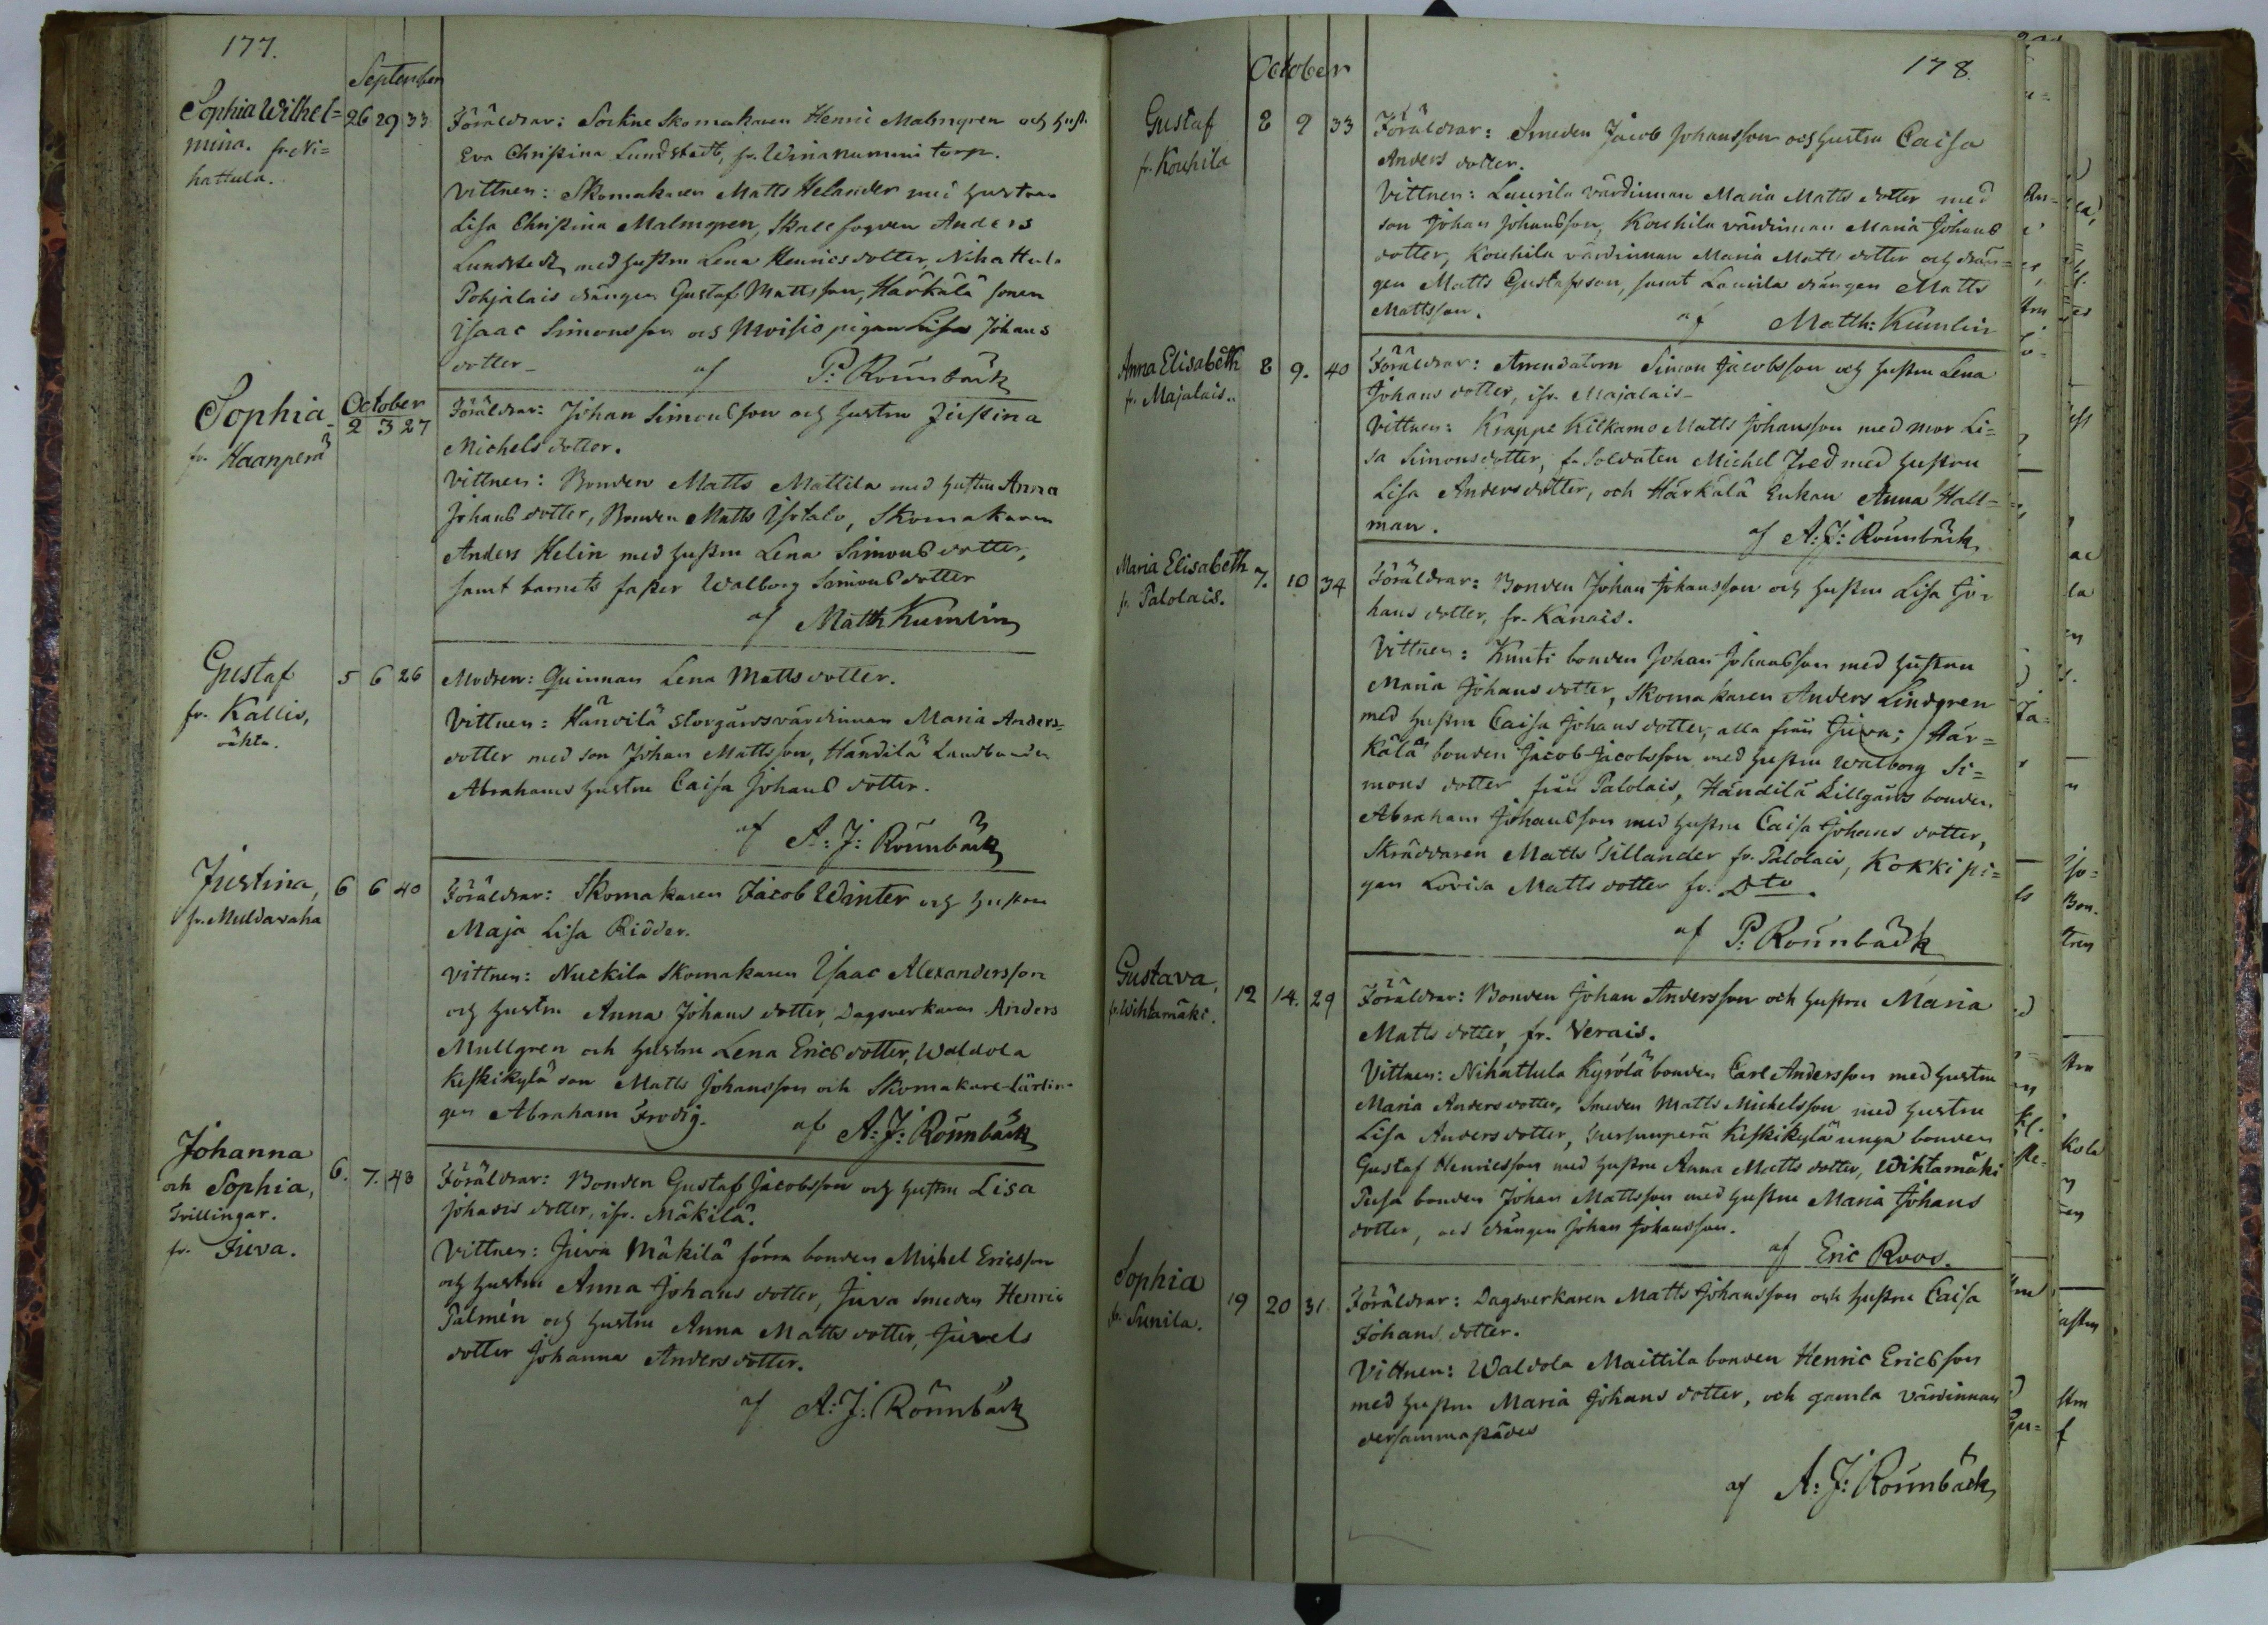 177.
September
Sophia Wilhel=
mina. fr. Ni=
hattula.
26 29 33
Föräldrar: Sockne Skomakaren Henric Malmgren och hust.
Eva Christina Lundstedt, fr. Winanummi torp.
Vittnen: Skomakaren Matts Helander med hustrun
Lisa Christina Malmgren, Skallfogden Anders
Lundstedt, med hustru Lena Henricsdotter, Nihattula
Pohjalais drängen Gustaf Mattsson, Härkälä sonen
Isaac Simonsson och pigan Lisa Johans
dotter
af P: Rönnbäck
Sophia
fr. Haanperä
October
2 3 27
Föräldrar: Johan Simonsson och hustru Justina
Michels dotter.
Vittnen: Bonden Matts Mattila med hustru Anna
Johans dotter, Bonden Matts Isotalo, Skomakaren
Anders Helin med hustru Lena Simonsdotter,
samt barnets faster Walborg Simonsdotter
af Matth Kumlin
Gustaf
fr. Kallis,
oäkta.
5 6 26
Modren: Quinnan Lena Mattsdotter.
Vittnen: Händilä storgårdsvärdinnan Maria Anders=
dotter med son Johan Mattsson, Händilä Landbonden
Abrahams hustru Caisa Johans dotter.
af A: J: Rönnbäck
Justina,
fr. Muldavaha
6 6 40
Föräldrar: Skomakaren Jacob Winter och hustru
Maja Lisa Riöder.
Vittnen: Nuckila Skomakaren Isaac Alexandersson
och hustru Anna Johans dotter, Dagsverkaren Anders
Mullgren och hustru Lena Ericsdotter, Waldola
Keskikylä son Matts Johansson och Skomakare-lärlin=
gen Abraham Frodig.
af A: J: Rönnbäck
Johanna
och Sophia,
Tvillingar.
fr. Juva.
6. 7. 43
Föräldrar: Bonden Gustaf Jacobsson och hustru Lisa
Johans dotter, ifr. Mäkilä.
Vittnen: Juva Mäkilä förra bonden Michel Ericsson
och hustru Anna Johans dotter, Juva Smeden Henric
Palmén och hustru Anna Matts dotter, Juvels
dotter Johanna Anders dotter.
af A: J: Rönnbäck
October
178.
Gustaf
fr. Kouhila
8 9 33
Föräldrar: Smeden Jacob Johansson och hustru Caisa
Anders dotter.
Vittnen: Laurila värdinnan Maria Matts dotter med
son Johan Johansson, Kouhila värdinnan Maria Johans
dotter, Kouhila värdinnan Maria Matts dotter och drän=
gen Matts Gustafsson, samt Laurila drängen Matts
Mattsson.
af Matth: Kumlin
Anna Elisabeth
fr. Majalais.
8 9. 40
Föräldrar: Arrendatorn Simon Jacobsson och hustru Lena
Johans dotter, ifr. Majalais
Vittnen: Krappe Kilkamo Matts Johansson med mor Li=
sa Simonsdotter, f. Soldaten Michel Fred med hustru
Lisa Anders dotter, och Härkälä Enkan Anna Hall=
man.
af A: J: Rönnbäck
Maria Elisabeth
fr. Palolais.
7. 10 34
Föräldrar: Bonden Johan Johansson och hustru Lisa Jo=
hans dotter, fr. Kanais.
Vittnen: Knuti bonden Johan Johansson med hustru
Maria Johans dotter, Skomakaren Anders Lindgren
med hustru Caisa Johans dotter, alla från Juva; Här=
kälä bonden Jacob Jacobsson med hustru Walborg Si=
mons dotter från Palolais, Händilä Lillgårds bonden
Abraham Johansson med hustru Caisa Johans dotter,
Skräddaren Matts Tillander fr. Palolais, Kokki pi=
gan Lovisa Matts dotter fr. Dto.
af P: Rönnbäck
Gustava,
fr. Wihtamäki.
12 14. 29
Föräldrar: Bonden Johan Andersson och hustru Maria
Matts dotter, fr. Verais.
Vittnen: Nihattula Kyrölä bonden Carl Andersson med hustru
Maria Anders dotter, Smeden Matts Michelsson med hustru
Lisa Anders dotter, Keskikylä unga bonden
Gustaf Henricsson med hustru Anna Matts dotter, Wihtamäki
Pusa bonden Johan Mattsson med hustru Maria Johans
dotter, och drängen Johan Johansson.
af Eric Roos.
Sophia
fr. Sunila.
19 20 31.
Föräldrar: Dagsverkaren Matts Johansson och hustru Caisa
Johans dotter.
Vittnen: Waldola Maittila bonden Henric Ericsson
med hustru Maria Johans dotter, och gamla värdinnan
dersammastädes
af A: J: Rönnbäck